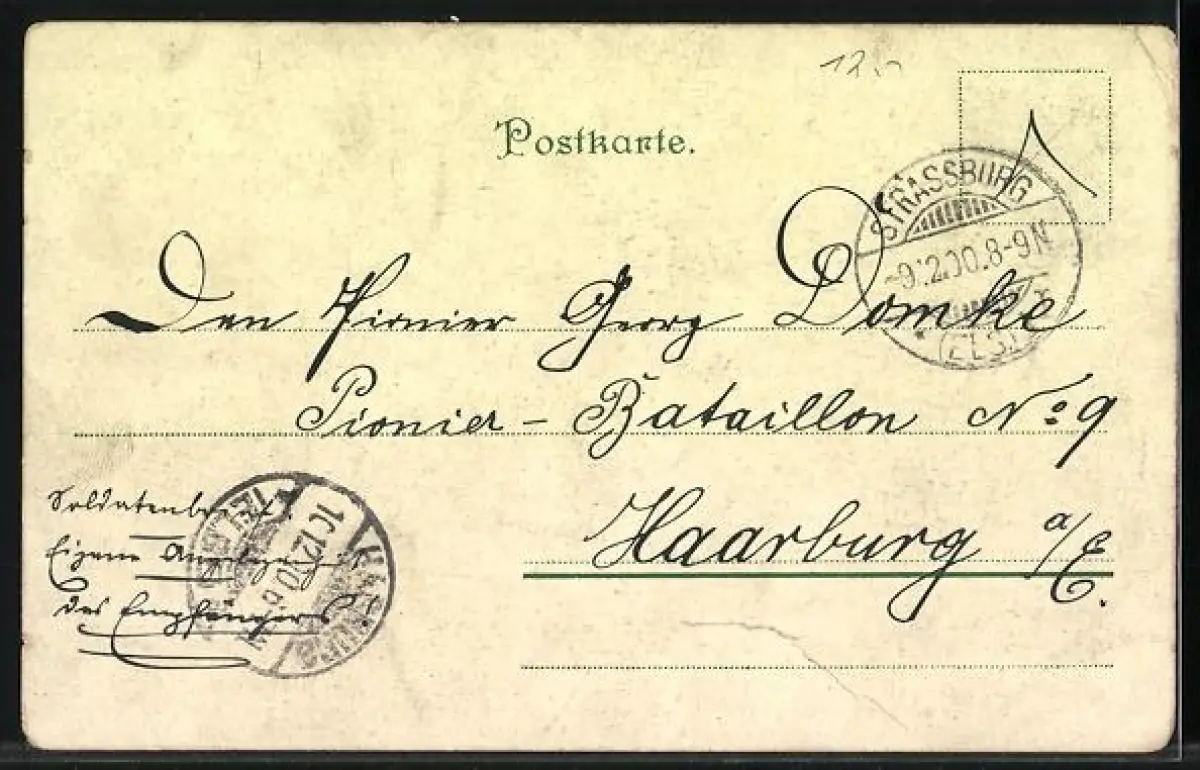 12.-
Postkarte.
STRASSBURG
-9.12.00.8-9N
* (ELS.) *
Den Pionier Georg Domke
Pionier-Bataillon No 9
Haarburg a/E.
Soldatenbrief.
Eigene Angelegenheit
des Empfängers